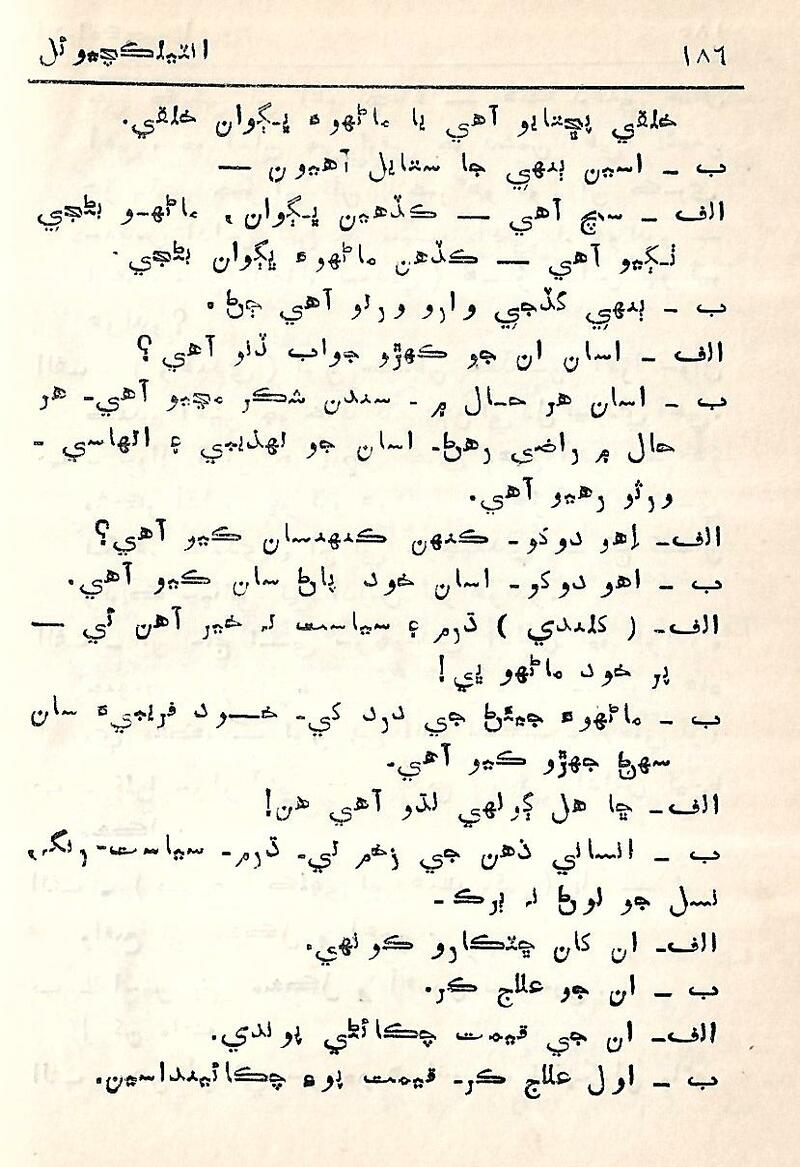 ١٨٦ انٽيليڪچيوئل
خلقي پڇتايو آهي يا ماڻهوءَ ڀڳوان خلقي.
ب ـ اسين ٻنهي جا ستايل آهيون —
الف ـ سچ آهي — ڪڏهين ڀڳوان، ماڻهو بڻجي
ٺڳيو آهي — ڪڏهن ماڻهوءَ ڀڳوان بڻجي.
ب ـ ٻنهي گڏجي وارو ورتو آهي ڄڻ.
الف ـ اسان ان جو ڪهڙو جواب ڏنو آهي؟
ب ـ اسان هر حال ۾ ـ سندن شڪر مڃيو آهي۔ هر
حال ۾ راضي رهڻ۔ اسان جو تهذيبي ۽ اتهاسي ـ
ورثو رهيو آهي.
الف۔ اِهو دوکو۔ ڪنهن ڪنهنسان ڪيو آهي؟
ب ـ اهو دوکو۔ اسان خود پاڻ سان ڪيو آهي.
الف۔ ( کلندي ) ڌرم ۽ سياست تہ خير آهن ئي —
پر خود ماڻهو بي!
ب ـ ماڻهوءَ جيئڻ جي درد کي۔ خود فريبيءَ سان
سهڻ جهڙو ڪيو آهي۔
الف۔ ڇا هل ڳولهي لڌو آهي هن!
ب ـ انساني ذهن جي زخم تي۔ ڌرم۔ سياست۔ رنگ،
نسل جو لوڻ نہ ٻرڪ۔
الف۔ ان کان ڇٽڪارو ڪونهي.
ب ـ ان جو علاج ڪر.
الف۔ ان جي قيمت چڪائڻي پوندي.
ب ـ اول علاج ڪر۔ قيمت پوءِ چڪائينداسين.